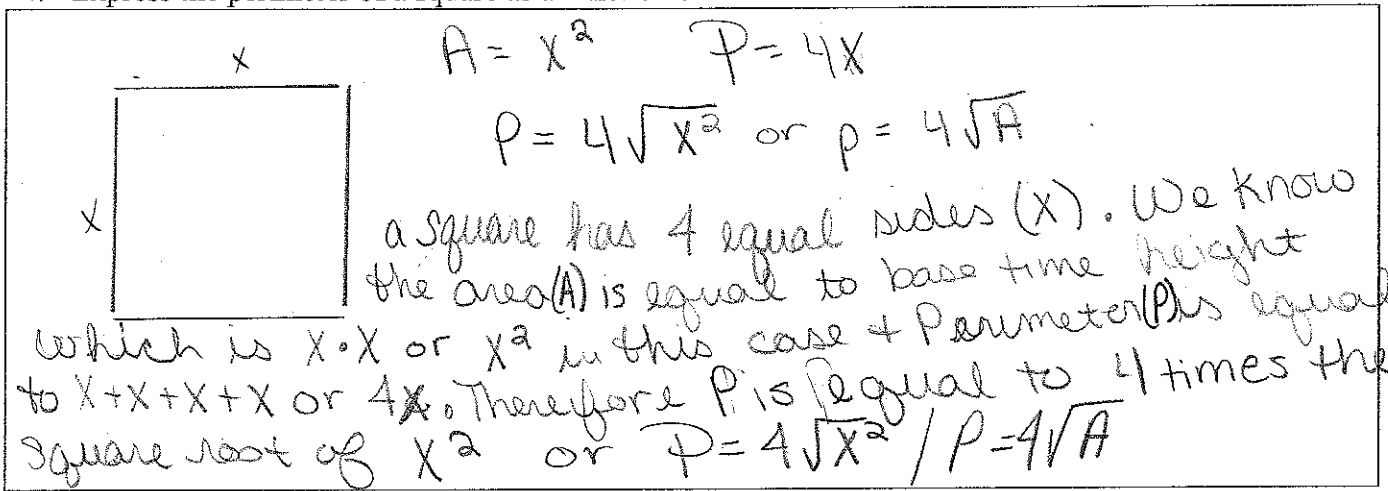 x
A = x² P = 4x
P = 4√x² or p = 4√A
x
a square has 4 equal sides (x). We know
the area(A) is equal to base time height
which is x•x or x² in this case + Perimeter(P) is equal
to x+x+x+x or 4x. Therefore P is equal to 4 times the
square root of x² or P=4√x² / P=4√A